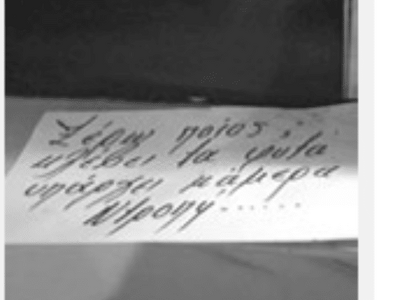 Ξέρω ποιος
κλέβει τα φυτά
υπάρχει κάμερα
Ντροπη......